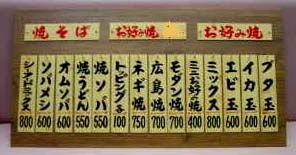 焼そば
お好み焼
お好み焼
ブタ玉 600
イカ玉 600
エビ玉 600
ミックス 800
ミニお好み焼 400
モダン焼 700
広島焼 700
ネギ焼 750
トッピング各 100
焼ソバ 550
焼うどん 550
オムソバ 600
ソバメシ 600
800